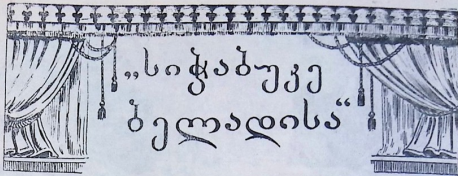 „სიჭაბუკე
ბელადისა“